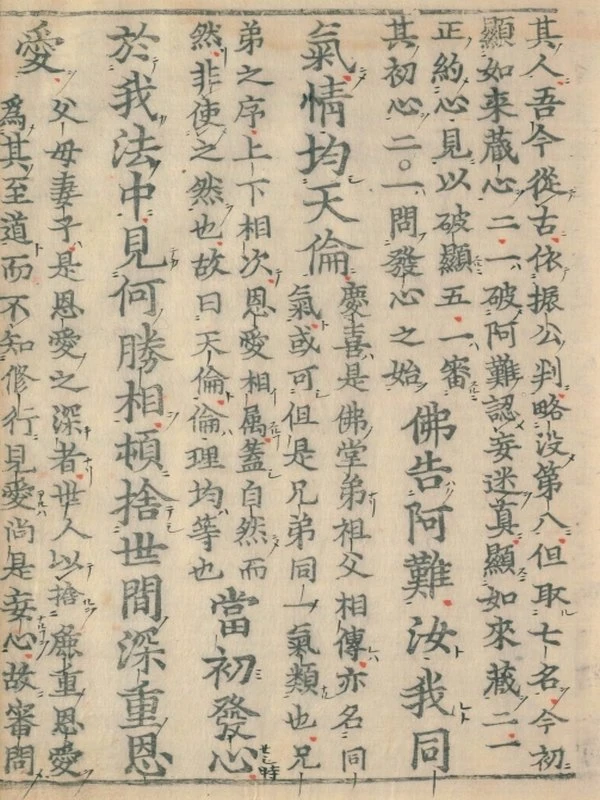 其人吾今從古依振公判略没第八但取七名今初
顯如來蔵心二一破阿難認妄迷真顯如來蔵二一
正約心見以破顯五一審
其初心二〇一問發心之始
佛告阿難汝我同
氣情均天倫
慶喜是佛堂弟祖父相傳亦名同
氣或可但是兄弟同一氣類也兄
弟之序上下相次恩愛相属蓋自然而
然非使之然也故曰天倫倫理均等也
當初發心
於我法中見何勝相頓捨世間深重恩
愛
父母妻子是恩愛之深者世人以捨麁重恩愛
爲其至道而不知修行見愛尚是妄心故審問